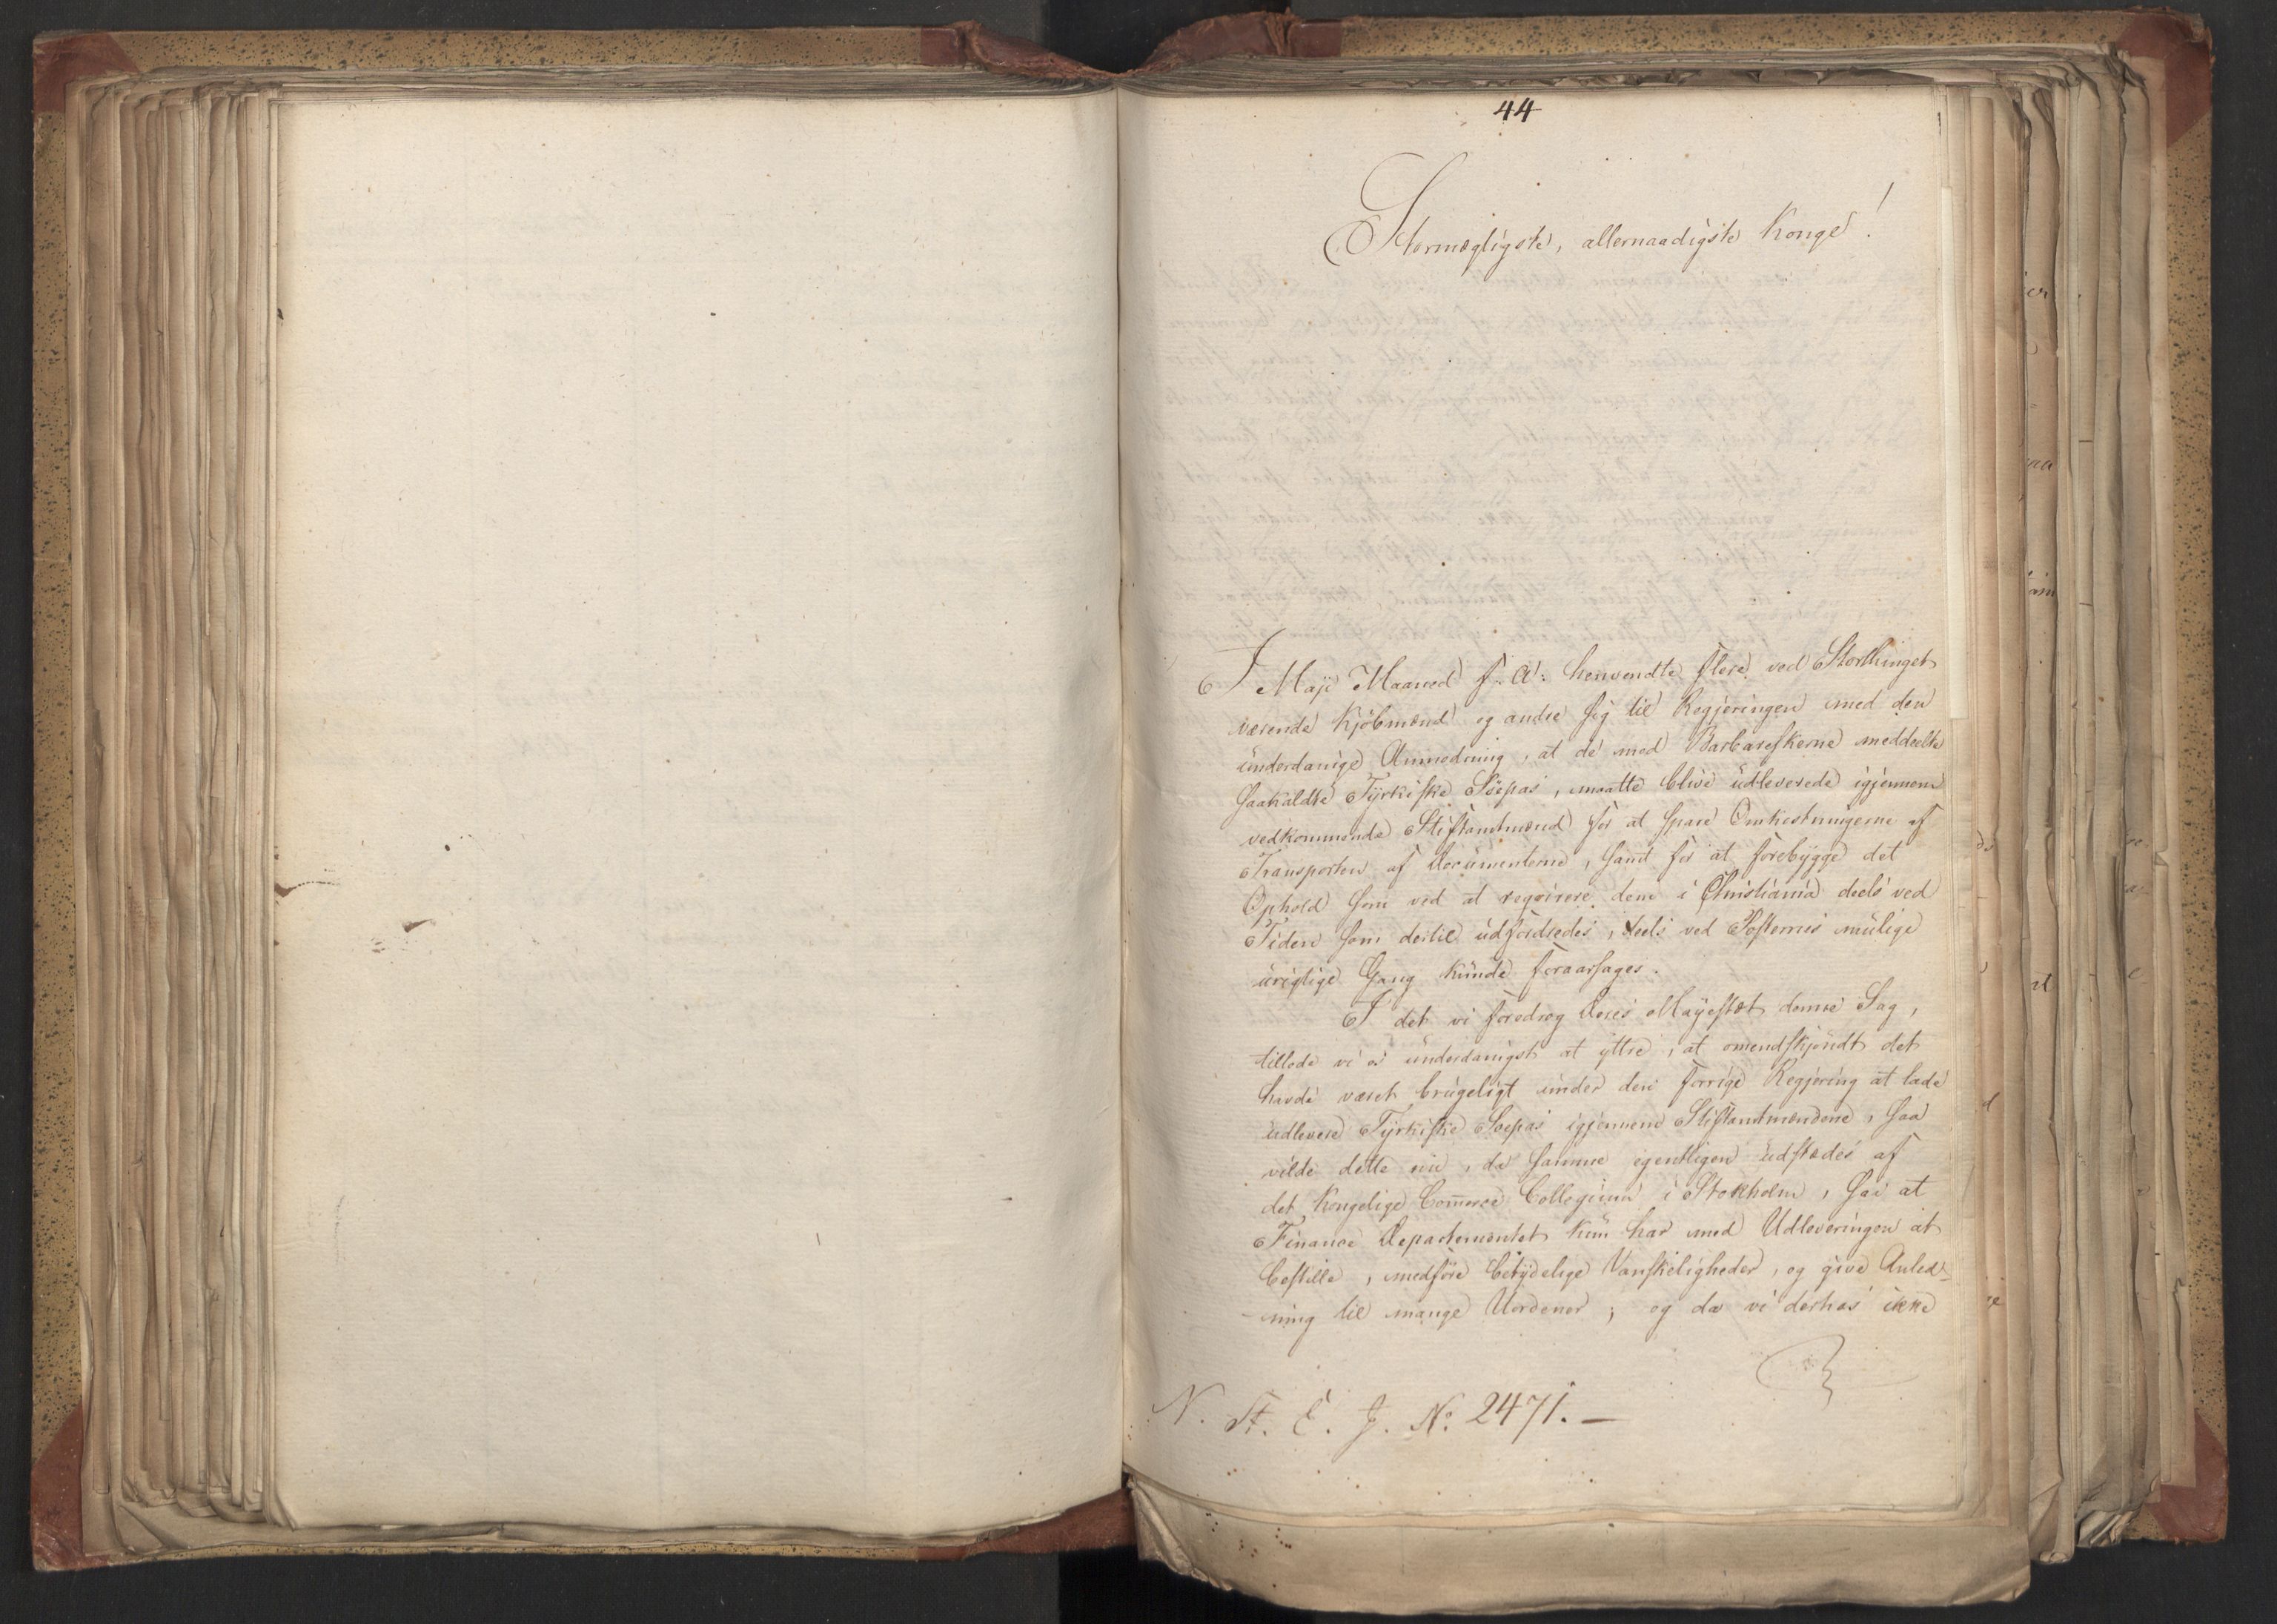 44
Stormægtigste, allernaadigste Konge!
I Maji Maaned f. A. henvendte flere ved Storthinget
værende Kjöbmænd og andre sig til Regjeringen med den
underdanige Anmodning, at de med Barbareskerne meddeelte
saakaldte Tyrkiske Söepas, maatte blive udleverede igjennem
vedkommende Stiftamtmænd for at spare Omkostningerne af
Transporten af Documenterne, samt for at forebygge det
Ophold som ved at reqvirere dem i Christiania deels ved
Tiden som dertil udfordredes, deels ved Posternes mulige
urigtige Gang kunde foraarsages.
I det vi foredrog Deres Mayestæt denne Sag,
tillode vi os underdanigst at yttre, at omendskjöndt det
havde været brugeligt under den forrige Regjering at lade
udlevere Tyrkiske Soepas igjennem Stiftamtmændene, saa
vilde dette nu, da samme egentligen udstædes af
det Kongelige Com̅erce Collegium i Stokholm, saa at
Finance Departementet kun har med Udleveringen at
bestille, medföre betydelige Vanskeligheder, og give Anled-
-ning til mange Uordener; og da vi derhos ikke
N. St. E. J. No. 2471. —